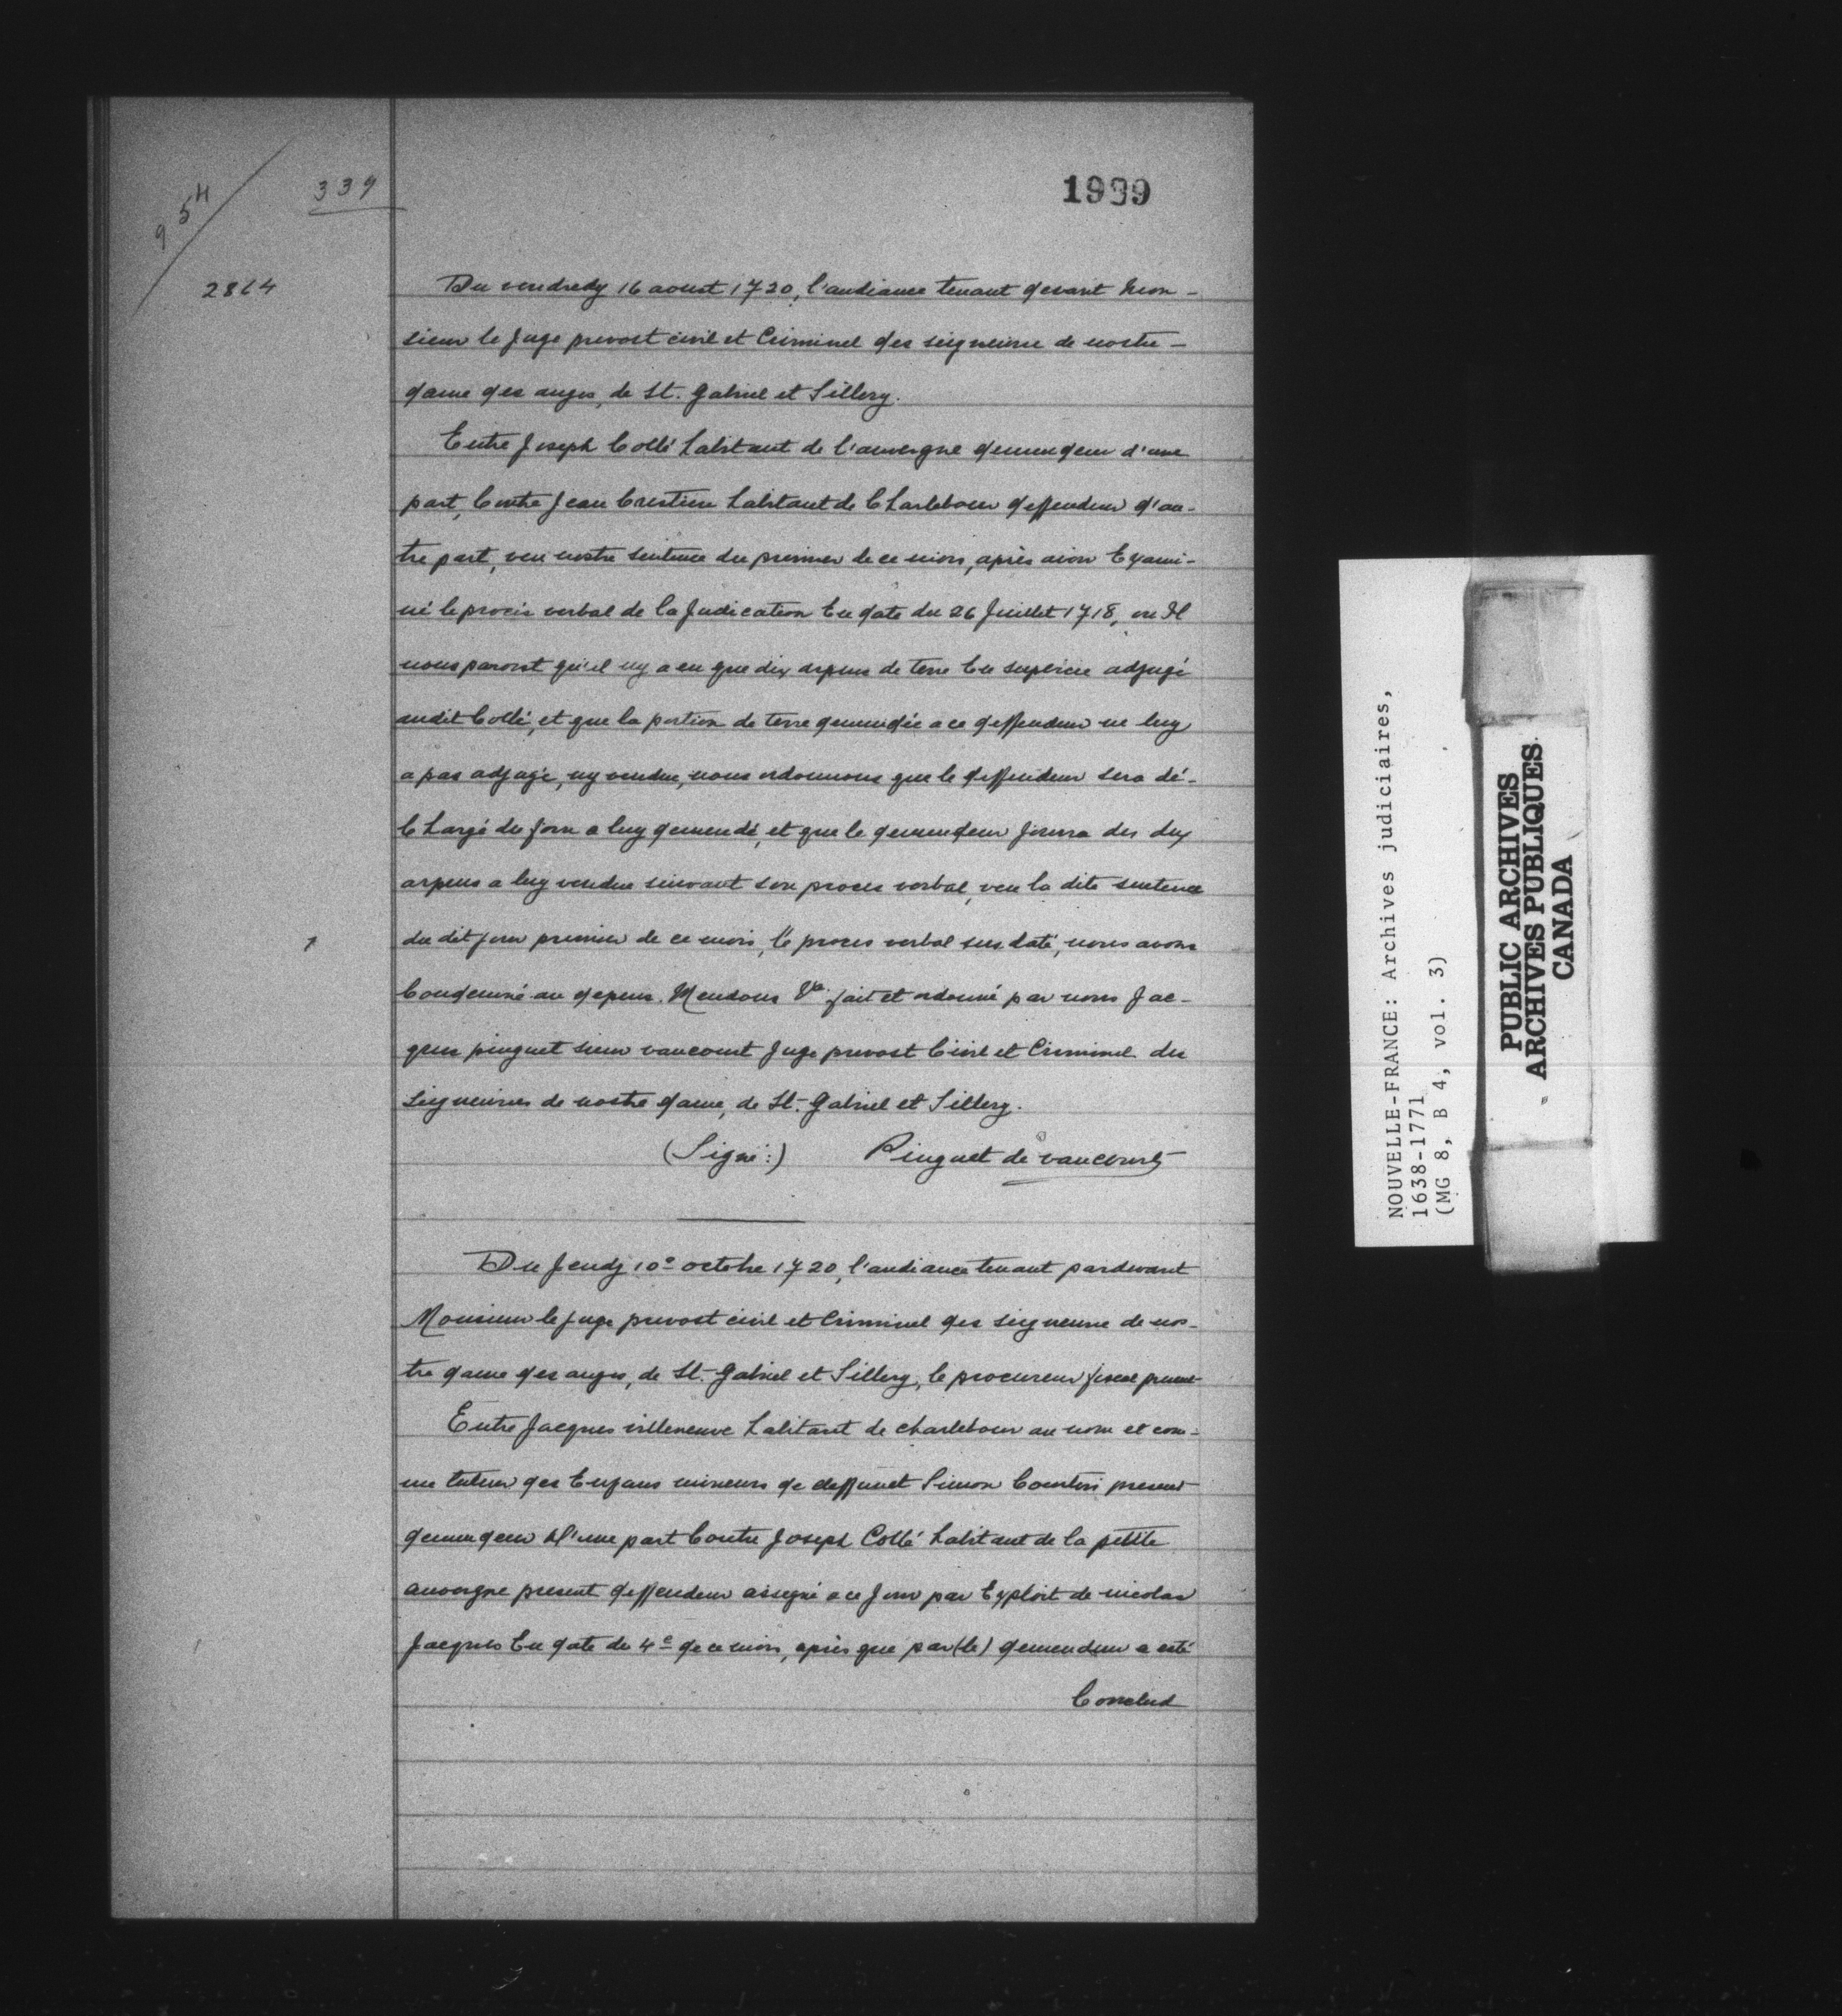 954
339
1999
2864
Du vendredy 16 aoust 1720, l'audiance tenant devant mon-
sieur le Juge prevost civil et Criminel des seigneurie de nostre-
dame des anges, de St. Gabriel et Sillery.
Entre Joseph Collé habitant de l'auvergne demendeur d'une
part, Contre Jean Crestien habitant de Charlebour deffendeur d'au-
tre part, veu nostre sentence du premier de ce mois, après avoir Exami-
né le procès verbal de la Judication En date du 26 Juillet 1718, ou Il
nous paroist qu'il ny a eu que dix arpens de terre En superficie adjugé
audit Collé, et que la portion de terre demendée a ce deffendeur ne luy
a pas adjugé, ny vendue, nous ordonnons que le deffendeur sera dé-
Chargé du fond a luy demendé, et que le demendeur jouira des dix
arpens a luy vendue suivant son proces verbal, veu la dite sentence
du dit jour premier de ce mois, le proces verbal sus daté, nous avons
Condemné au depens. Mendons &a. fait et ordonné par nous Jac-
ques pinguet sieur vaucourt Juge prevost Civil et Criminel des
Seigneuries de nostre dame, de St. Gabriel et Sillery.
(Signé:) Pinguet de vaucourt
Du Jeudy 10e octobre 1720, l'audiance tenant pardevant
Monsieur le Juge prevost civil et Criminel des seigneurie de nos-
tre dame des anges, de St. Gabriel et Sillery, le procureur fiscal present
Entre Jacques villeneuve habitant de charlebour au nom et com-
me tuteur des Enfans mineurs de deffunct Simon present
demendeur d'une part Contre Joseph Collé habitant de la petitte
auvergne present deffendeur assigné a ce Jour par Exploit de nicolas
Jacques En date du 4e de ce mois, après que par (le) demendeur a esté
Conclud
NOUVELLE-FRANCE: Archives judiciaires,
1638-1771
(MG 8, B 4, vol. 3)
PUBLIC ARCHIVES
ARCHIVES PUBLIQUES
CANADA